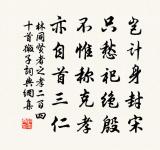 豈計身封宋
只愁祀絕殷
不惟稱克孝
亦自首三仁
林同賢者之孝二百四
十首微子詞典網集